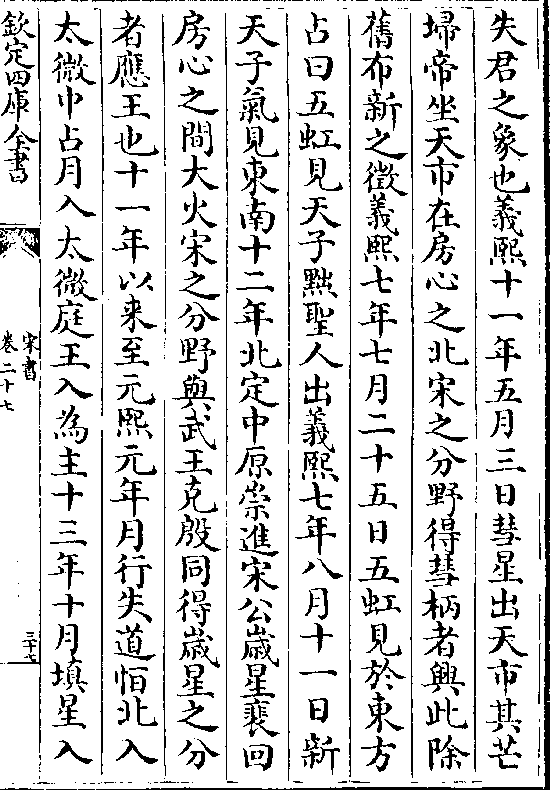 失君之象也義熙十一年五月三日彗星出天市其芒
埽帝坐天市在房心之北宋之分野得彗柄者興此除
舊布新之徵義熙七年七月二十五日五虹見於東方
占曰五虹見天子黜聖人出義熙七年八月十一日新
天子氣見東南十二年北定中原崇進宋公歲星裵回
房心之間大火宋之分野與武王克殷同得歲星之分
者應王也十一年以来至元熙元年月行失道恒北入
太微中占月入太微庭王入為主十三年十月塡星入
欽定四庫全書
宋書
卷二十七
三十六